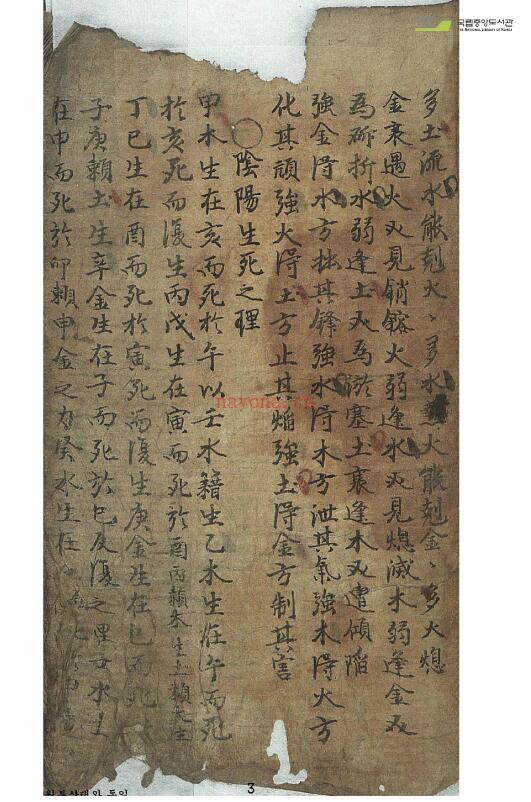 국립중앙도서관
THE NATIONAL LIBRARY OF KOREA
多土流水能剋火〻多水 火能剋金〻多火熄
金衰遇火必見銷鎔火弱逢水必見熄滅木弱逢金必
為斫折水弱逢土必為淤塞土衰逢木必遭傾陷
強金得水方挫其鋒強水得木方泄其氣強木得火方
化其頑強火得土方止其焰強土得金方制其害
○陰陽生死之理
甲木生在亥而死於午以壬水籍生乙木生在午而死
於亥死而復生丙戊生在寅而死於酉丙賴木生土賴火生
丁巳生在酉而死於寅死而復生庚金生在巳而死
子庚賴土生辛金生在子而死於巳反復之理壬水生
在申而死於卯賴申金之力癸水生在
nayona.cn
3